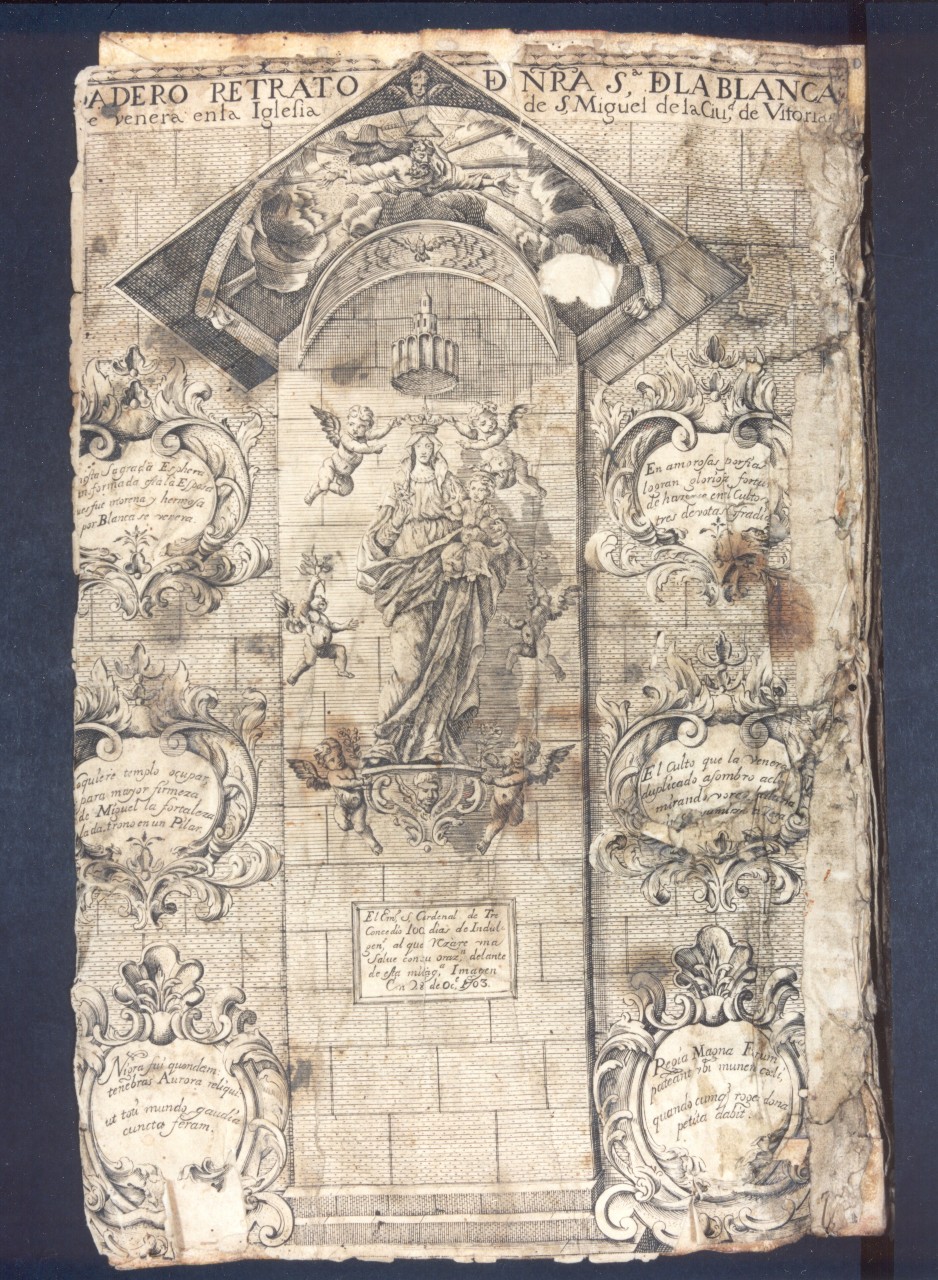 ADERO RETRATO D ÑRA S.ª DLA BLANCA
e venera enla Iglesia de S. Miguel de la Ciu.d de Vitoria
Sagrada Esphera
informada está la Esposa
fue morena y hermosa
por Blanca se venera.
En amorosas porfias
logran gloriosa
en el Culto
tres devotas
templo ocupas
para mayor firmeza
de Miguel la fortaleza
trono en un Pilar
El Culto que la venera
duplicado asombro
El Em.º S. Cardenal de
Concedio 100 dias de Indul-
gen.s al que Rezare una
Salve con su oraz.n delante
de esta milag.a Imagen
En 28 de Oc.e 1703.
Nigra fui quondam:
tenebras Aurora reliqui:
ut toti mundo gaudia
cuncta feram.
Regia Magna
pateant ubi munera cœli,
quando cumq3 roges dona
petita dabit.